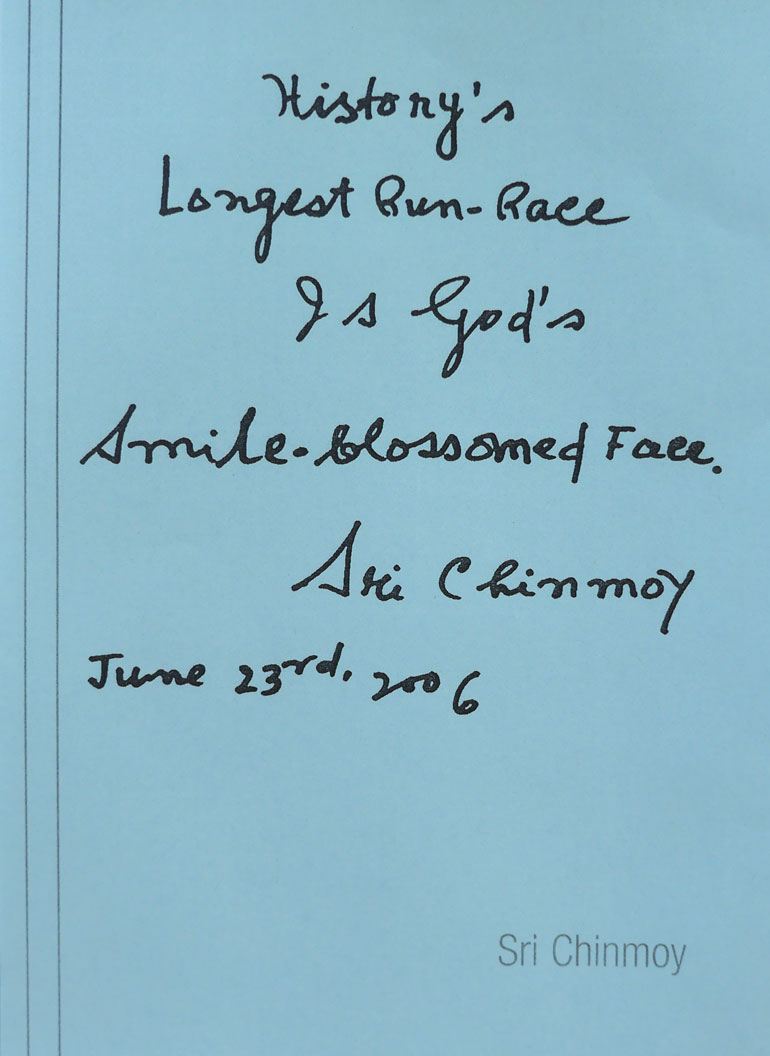 History's
Longest Run-Race
Is God's
Smile-blossomed Face.
Sri Chinmoy
June 23rd. 2006
Sri Chinmoy